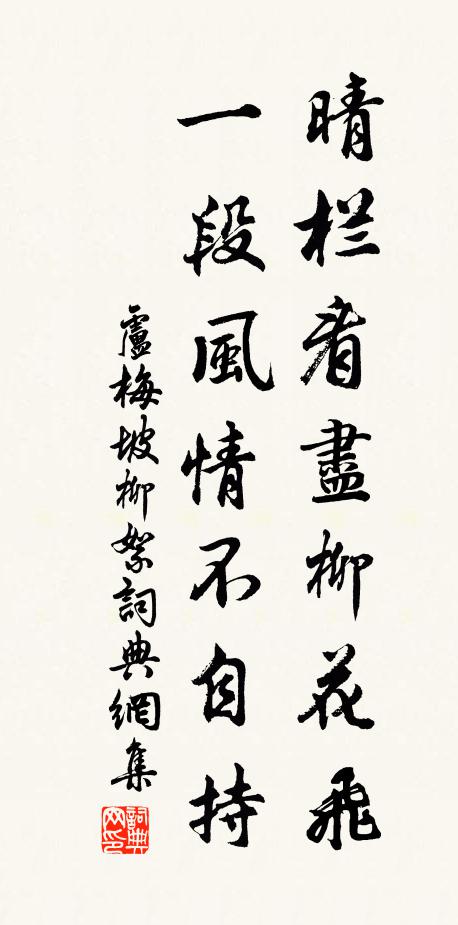 晴栏看盡柳花飛
一段風情不自持
盧梅坡柳絮詞典網集
詞典网印